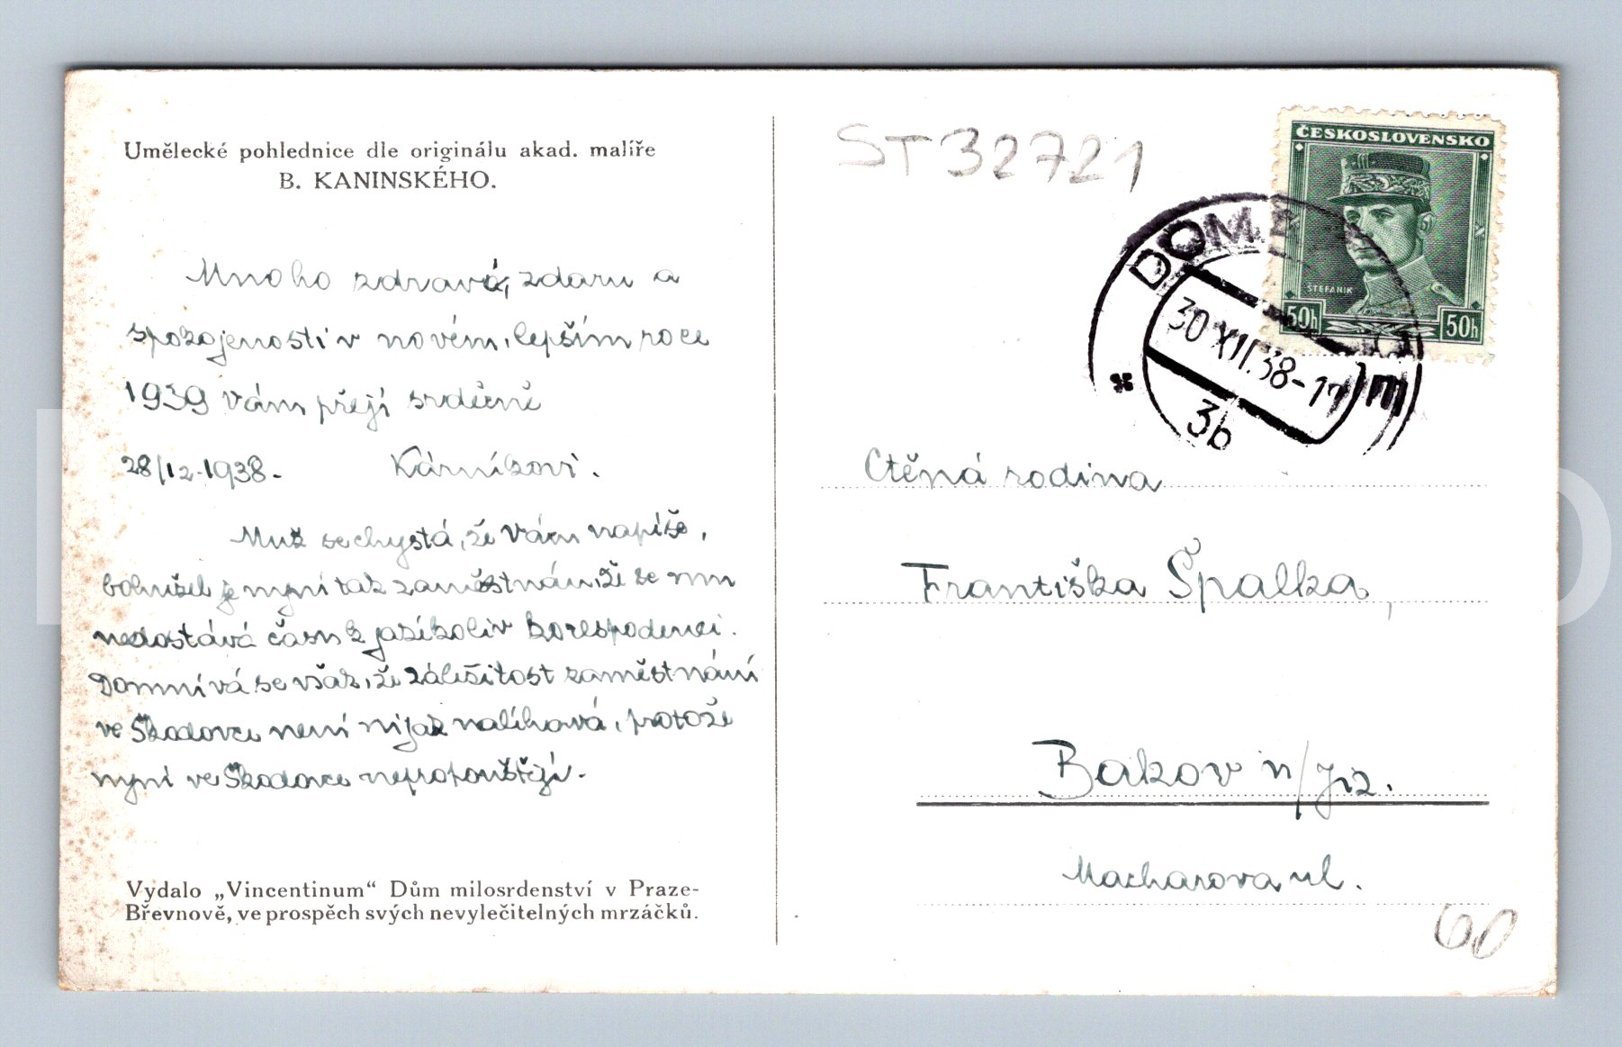 Umělecké pohlednice dle originálu akad. malíře
B. KANINSKÉHO.
Mnoho zdraví, zdaru a
spokojenosti v novém, lepším roce
1939 vám přejí srdečně
28/12-1938. Kárníkovi.
Muž se chystá, že vám napíše,
je nyní tak zaměstnán, že se mu
nedostává času k jakékoliv korespodenci.
Domnívá se však, že záležitost zaměstnání
ve Škodovce není nijak naléhavá, protože
nyní ve Škodovce nepropouštějí.
Vydalo „Vincentinum“ Dům milosrdenství v Praze-
Břevnově, ve prospěch svých nevylečitelných mrzáčků.
ST32721
ČESKOSLOVENSKO
ŠTEFÁNIK
50h 50h
30 XII. 38
3b
Ctěná rodina
Františka Špalka,
Bakov n/Jiz.
Macharova ul.
60